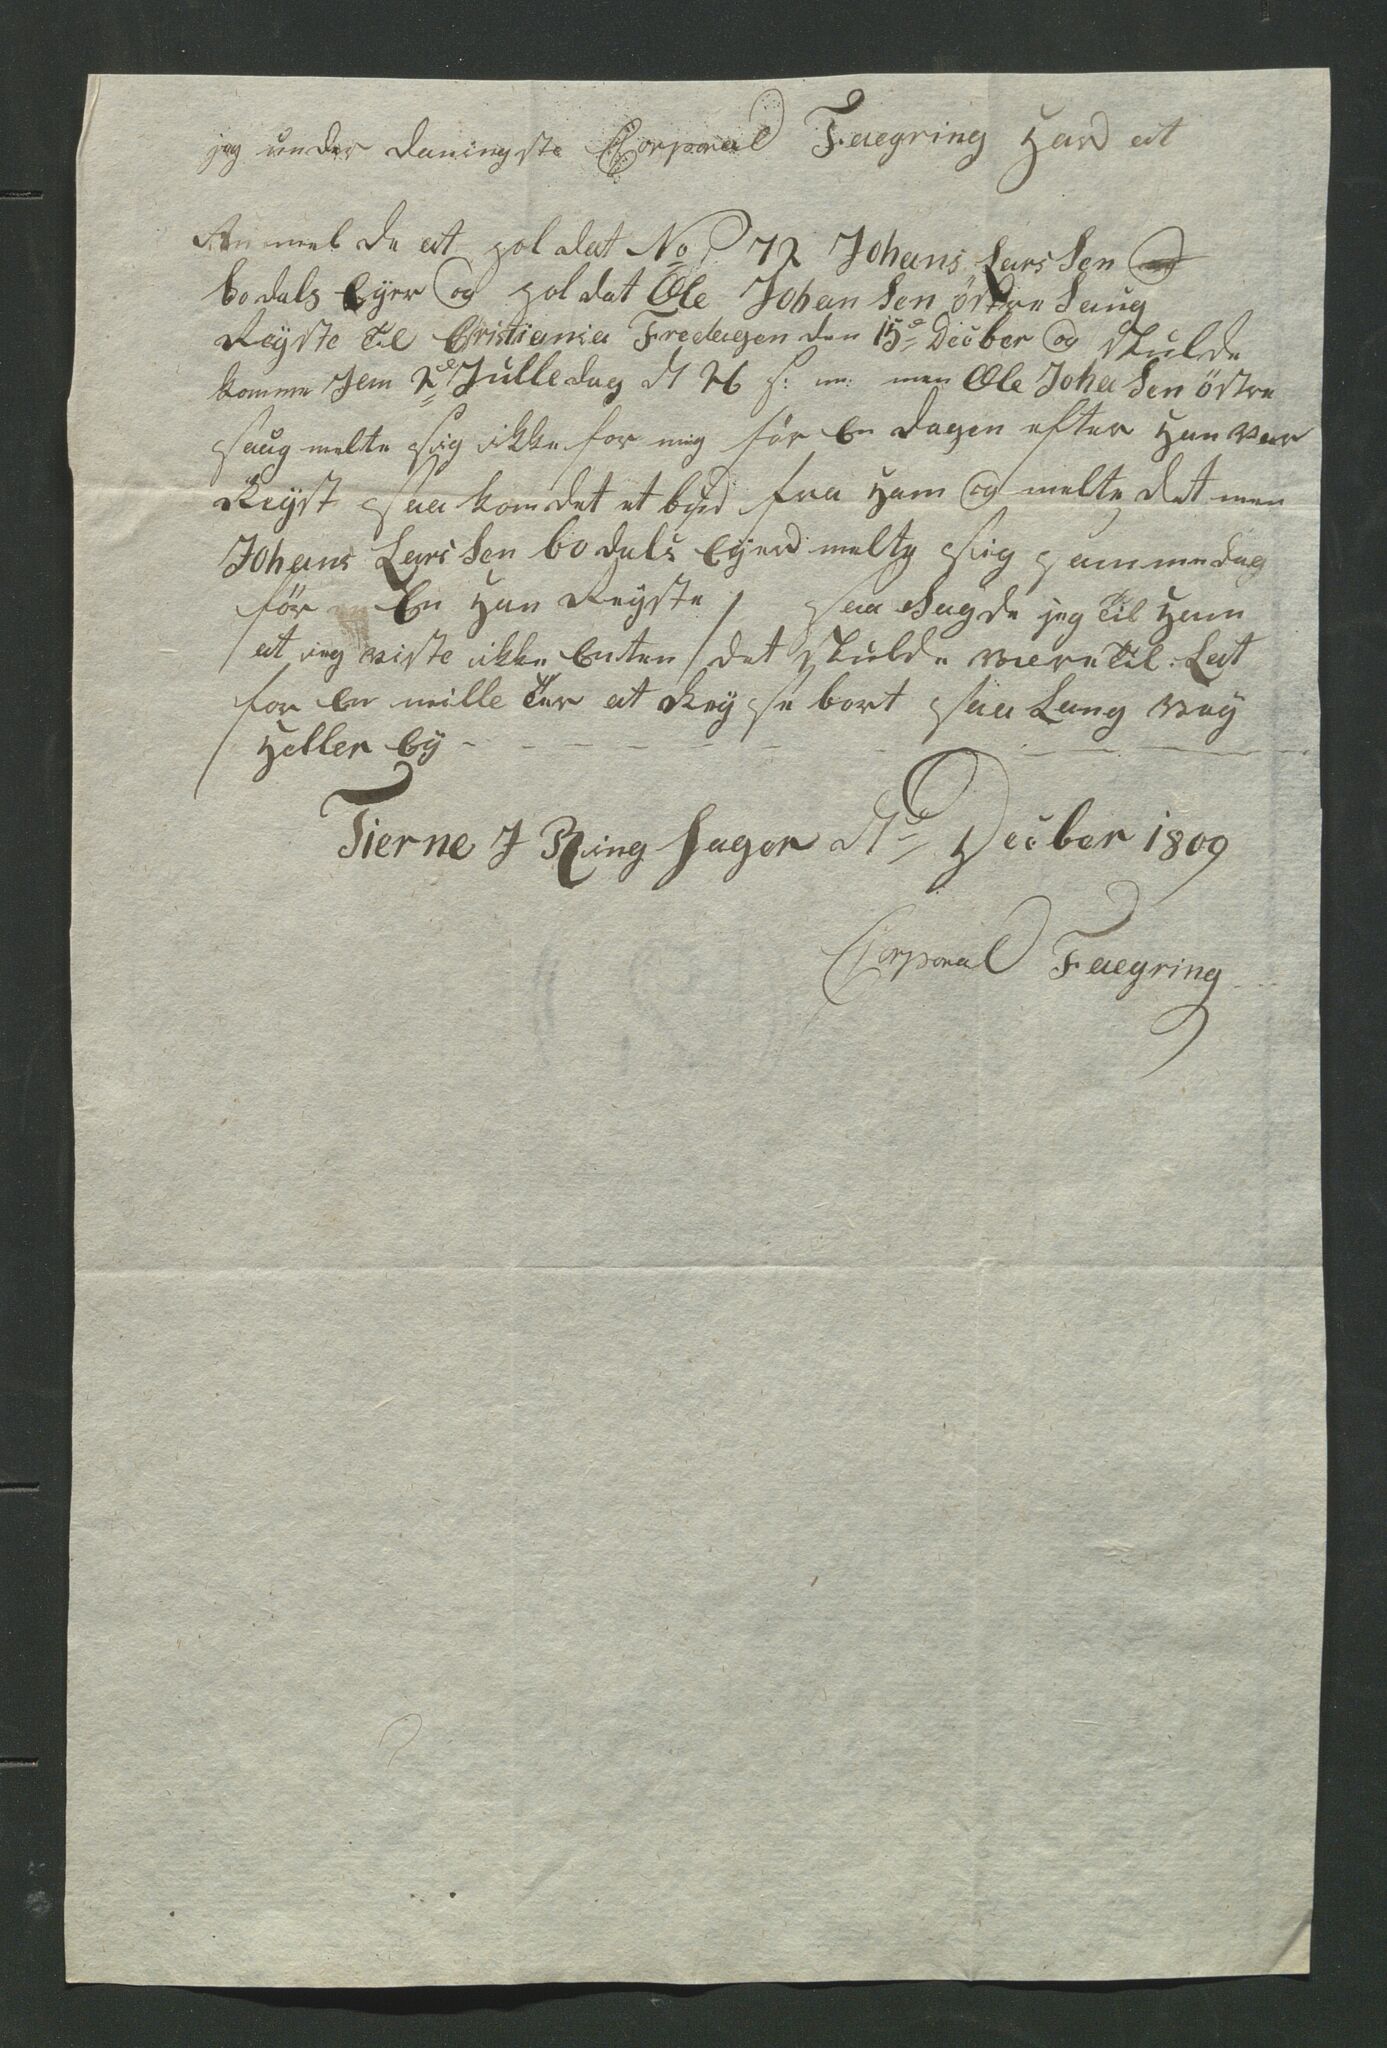 jeg under daningste Corporal Faegring Har at
An mel de at sol dat No 72 Johans Lars Sen
bo dals Eyer og sol dat Ole Johan Sen östre Saug
Reyste til Cristiania Fredagen den 15de Decber og skulde
komme Jem 2de Julledag d 26 s: m: men Ole Joha Sen östre
saug melte sig ikke for mig för En dagen efter Han var
Reyst saa kom det et bud fra Ham og melte det men
Johans Lars Sen bo dals Eyer melte sig samme dag
för En Han Reyste / saa Sagde jeg til Ham
at ieg viste ikke Enten / det skulde være til Lat
for En mille Ter at Rey se bort saa Lang vey
Heller Ey
Tierne J Ring Sager Decber 1809
Corporal Faegring